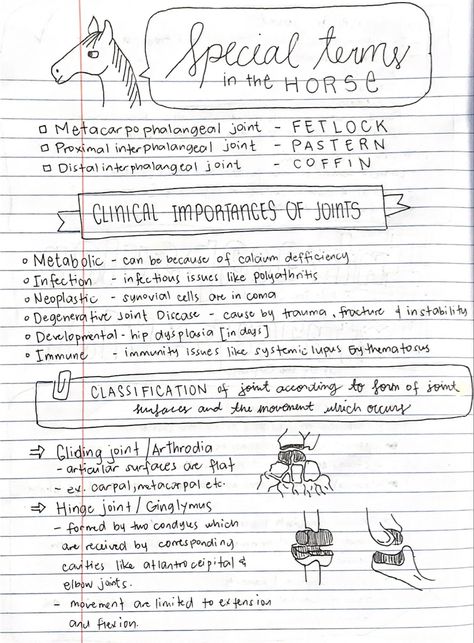 Special terms
in the HORSE
Metacarpophalangeal joint - FETLOCK
Proximal interphalangeal joint - PASTERN
Distal interphalangeal joint - COFFIN
CLINICAL IMPORTANCES OF JOINTS
Metabolic - can be because of calcium defficiency
Infection - infectious issues like polyathritis
Neoplastic - synovial cells are in coma
Degenerative Joint Disease - cause by trauma, fracture & instability
Developmental - hip dysplasia [in days]
Immune - immunity issues like systemic lupus Erythematosus
CLASSIFICATION of joint according to form of joint
surfaces and the movement which occurs
⇒ Gliding joint / Arthrodia
- articular surfaces are flat
- ex. carpal, metacarpal etc.
⇒ Hinge joint / Ginglymus
- formed by two condyles which
are received by corresponding
cavities like atlantroccipital &
elbow joints.
- movement are limited to extension
and flexion.